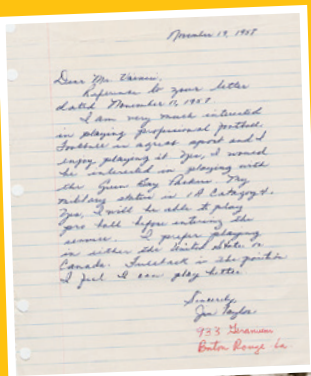 November 19, 1957
Dear Mr. Vainisi,
Reference to your letter
dated November 11, 1957.
I am very much interested
in playing professional football.
Football is a great sport and I
enjoy playing it. Yes, I would
be interested in playing with
the Green Bay Packers. My
military status is 1A Category.
Yes, I will be able to play
pro ball before entering the
service. I prefer playing
in either the United States or
Canada. Fullback is the position
I feel I can play better.
Sincerely,
Jim Taylor
933 Geranium
Baton Rouge La